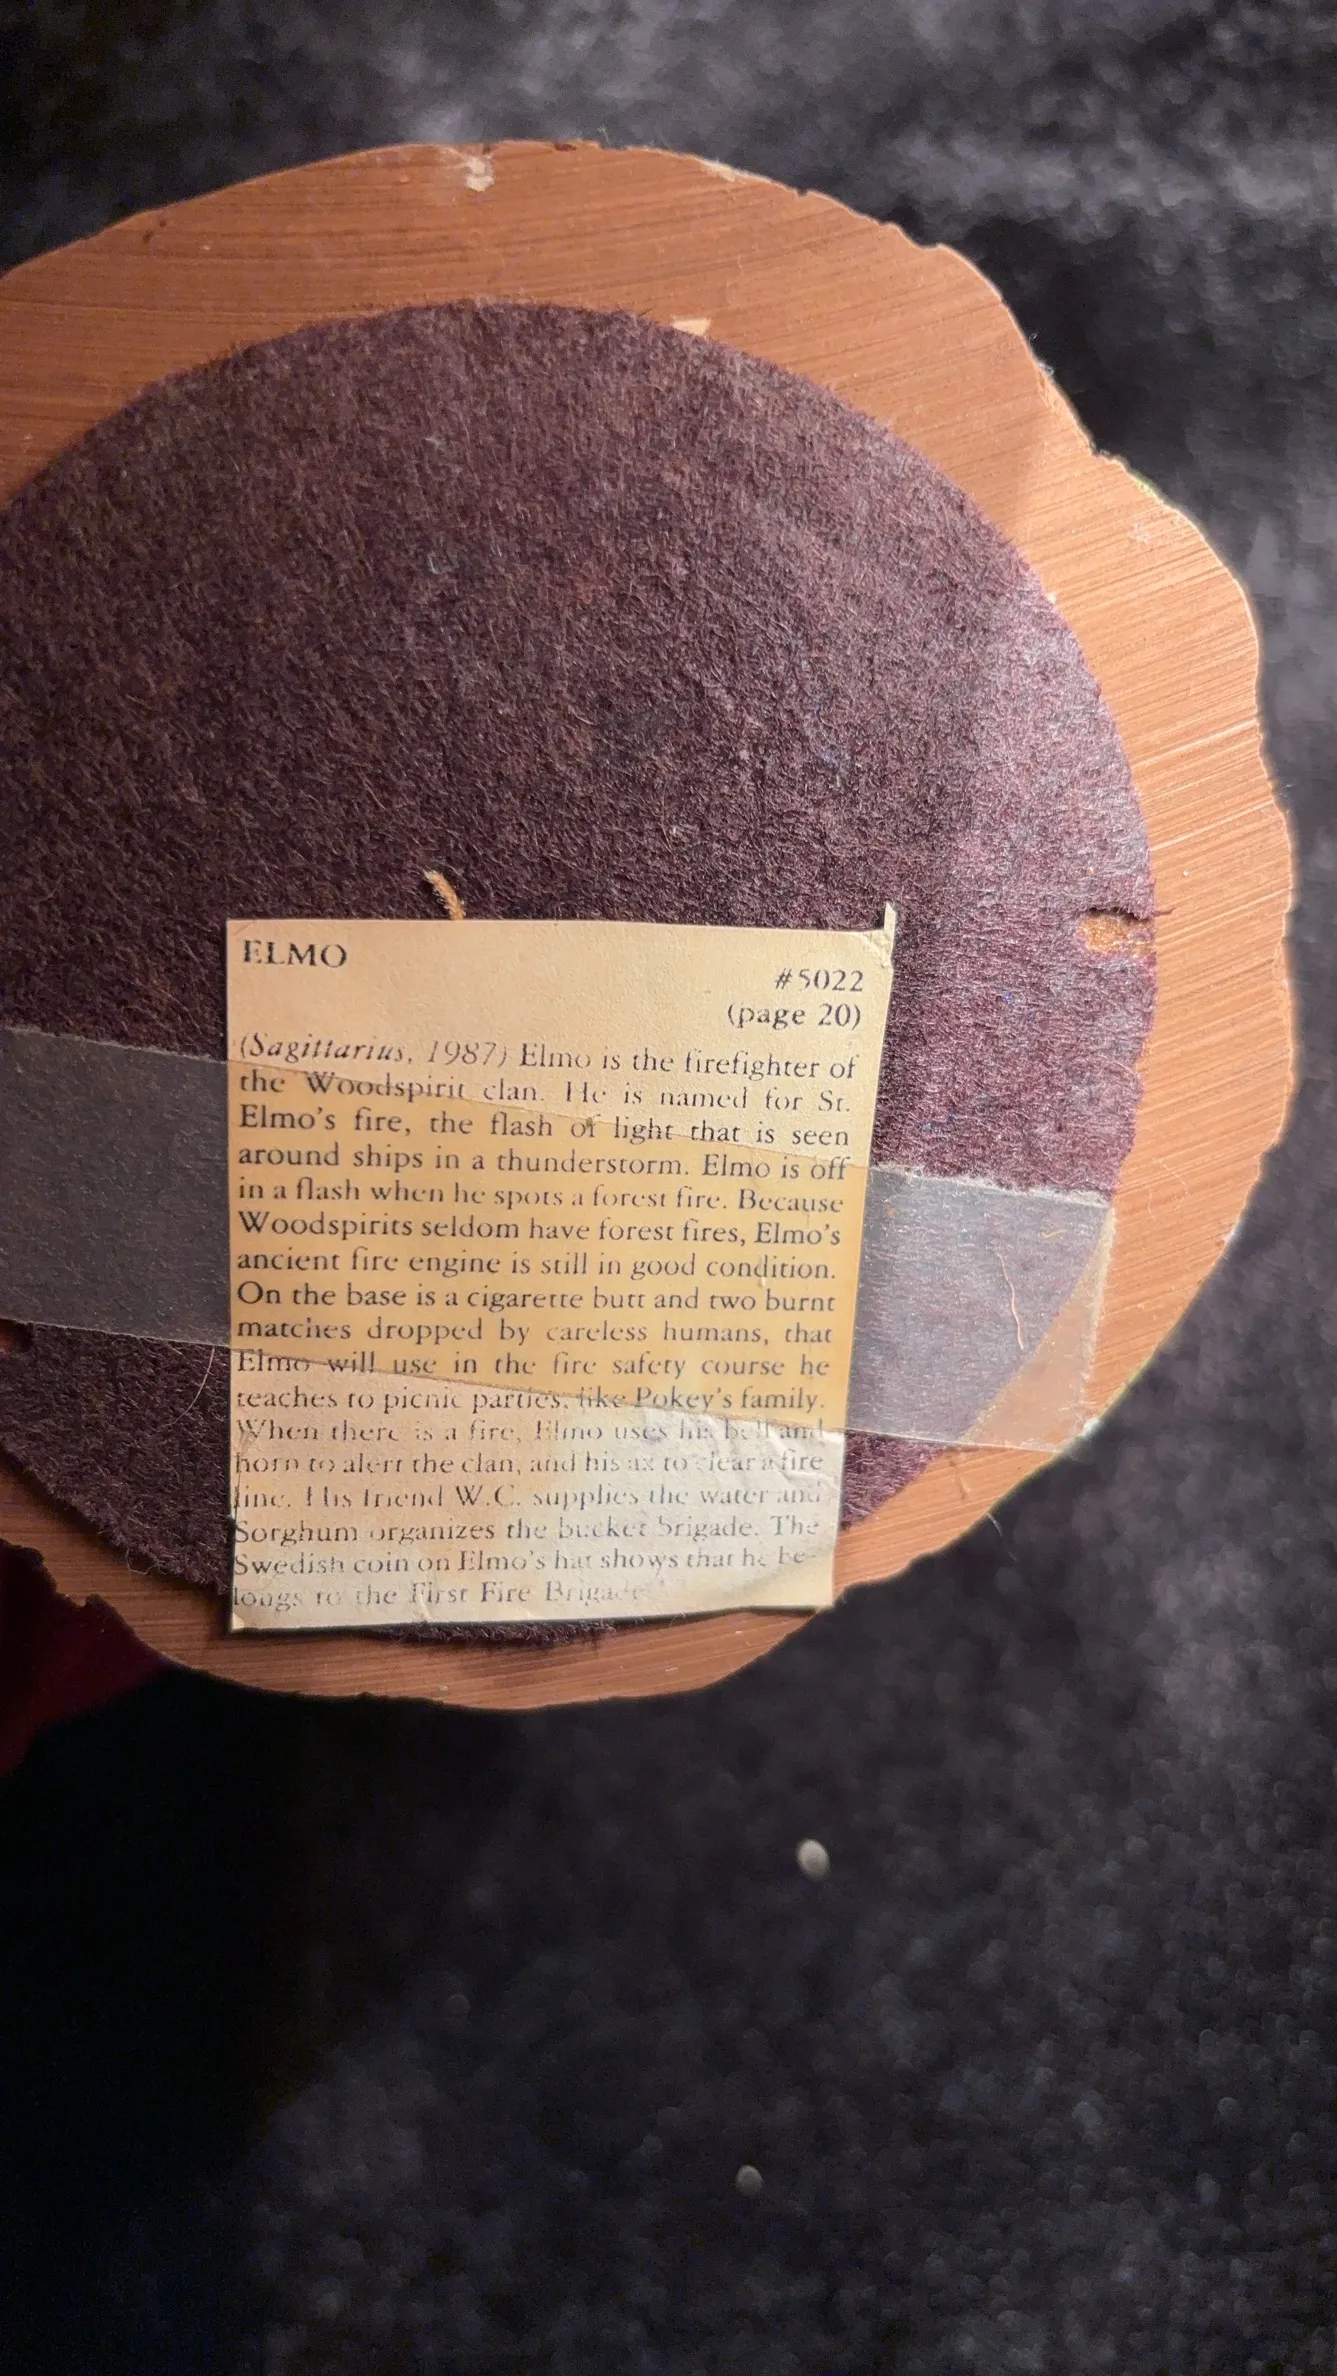 ELMO
#5022
(page 20)
(Sagittarius, 1987) Elmo is the firefighter of
the Woodspirit clan. He is named for St.
Elmo's fire, the flash of light that is seen
around ships in a thunderstorm. Elmo is off
in a flash when he spots a forest fire. Because
Woodspirits seldom have forest fires, Elmo's
ancient fire engine is still in good condition.
On the base is a cigarette butt and two burnt
matches dropped by careless humans, that
Elmo will use in the fire safety course he
teaches to picnic parties, like Pokey's family.
When there is a fire, Elmo uses his bell and
horn to alert the clan, and his ax to clear a fire
line. His friend W.C. supplies the water and
Sorghum organizes the bucket brigade. The
Swedish coin on Elmo's hat shows that he be-
longs to the First Fire Brigade